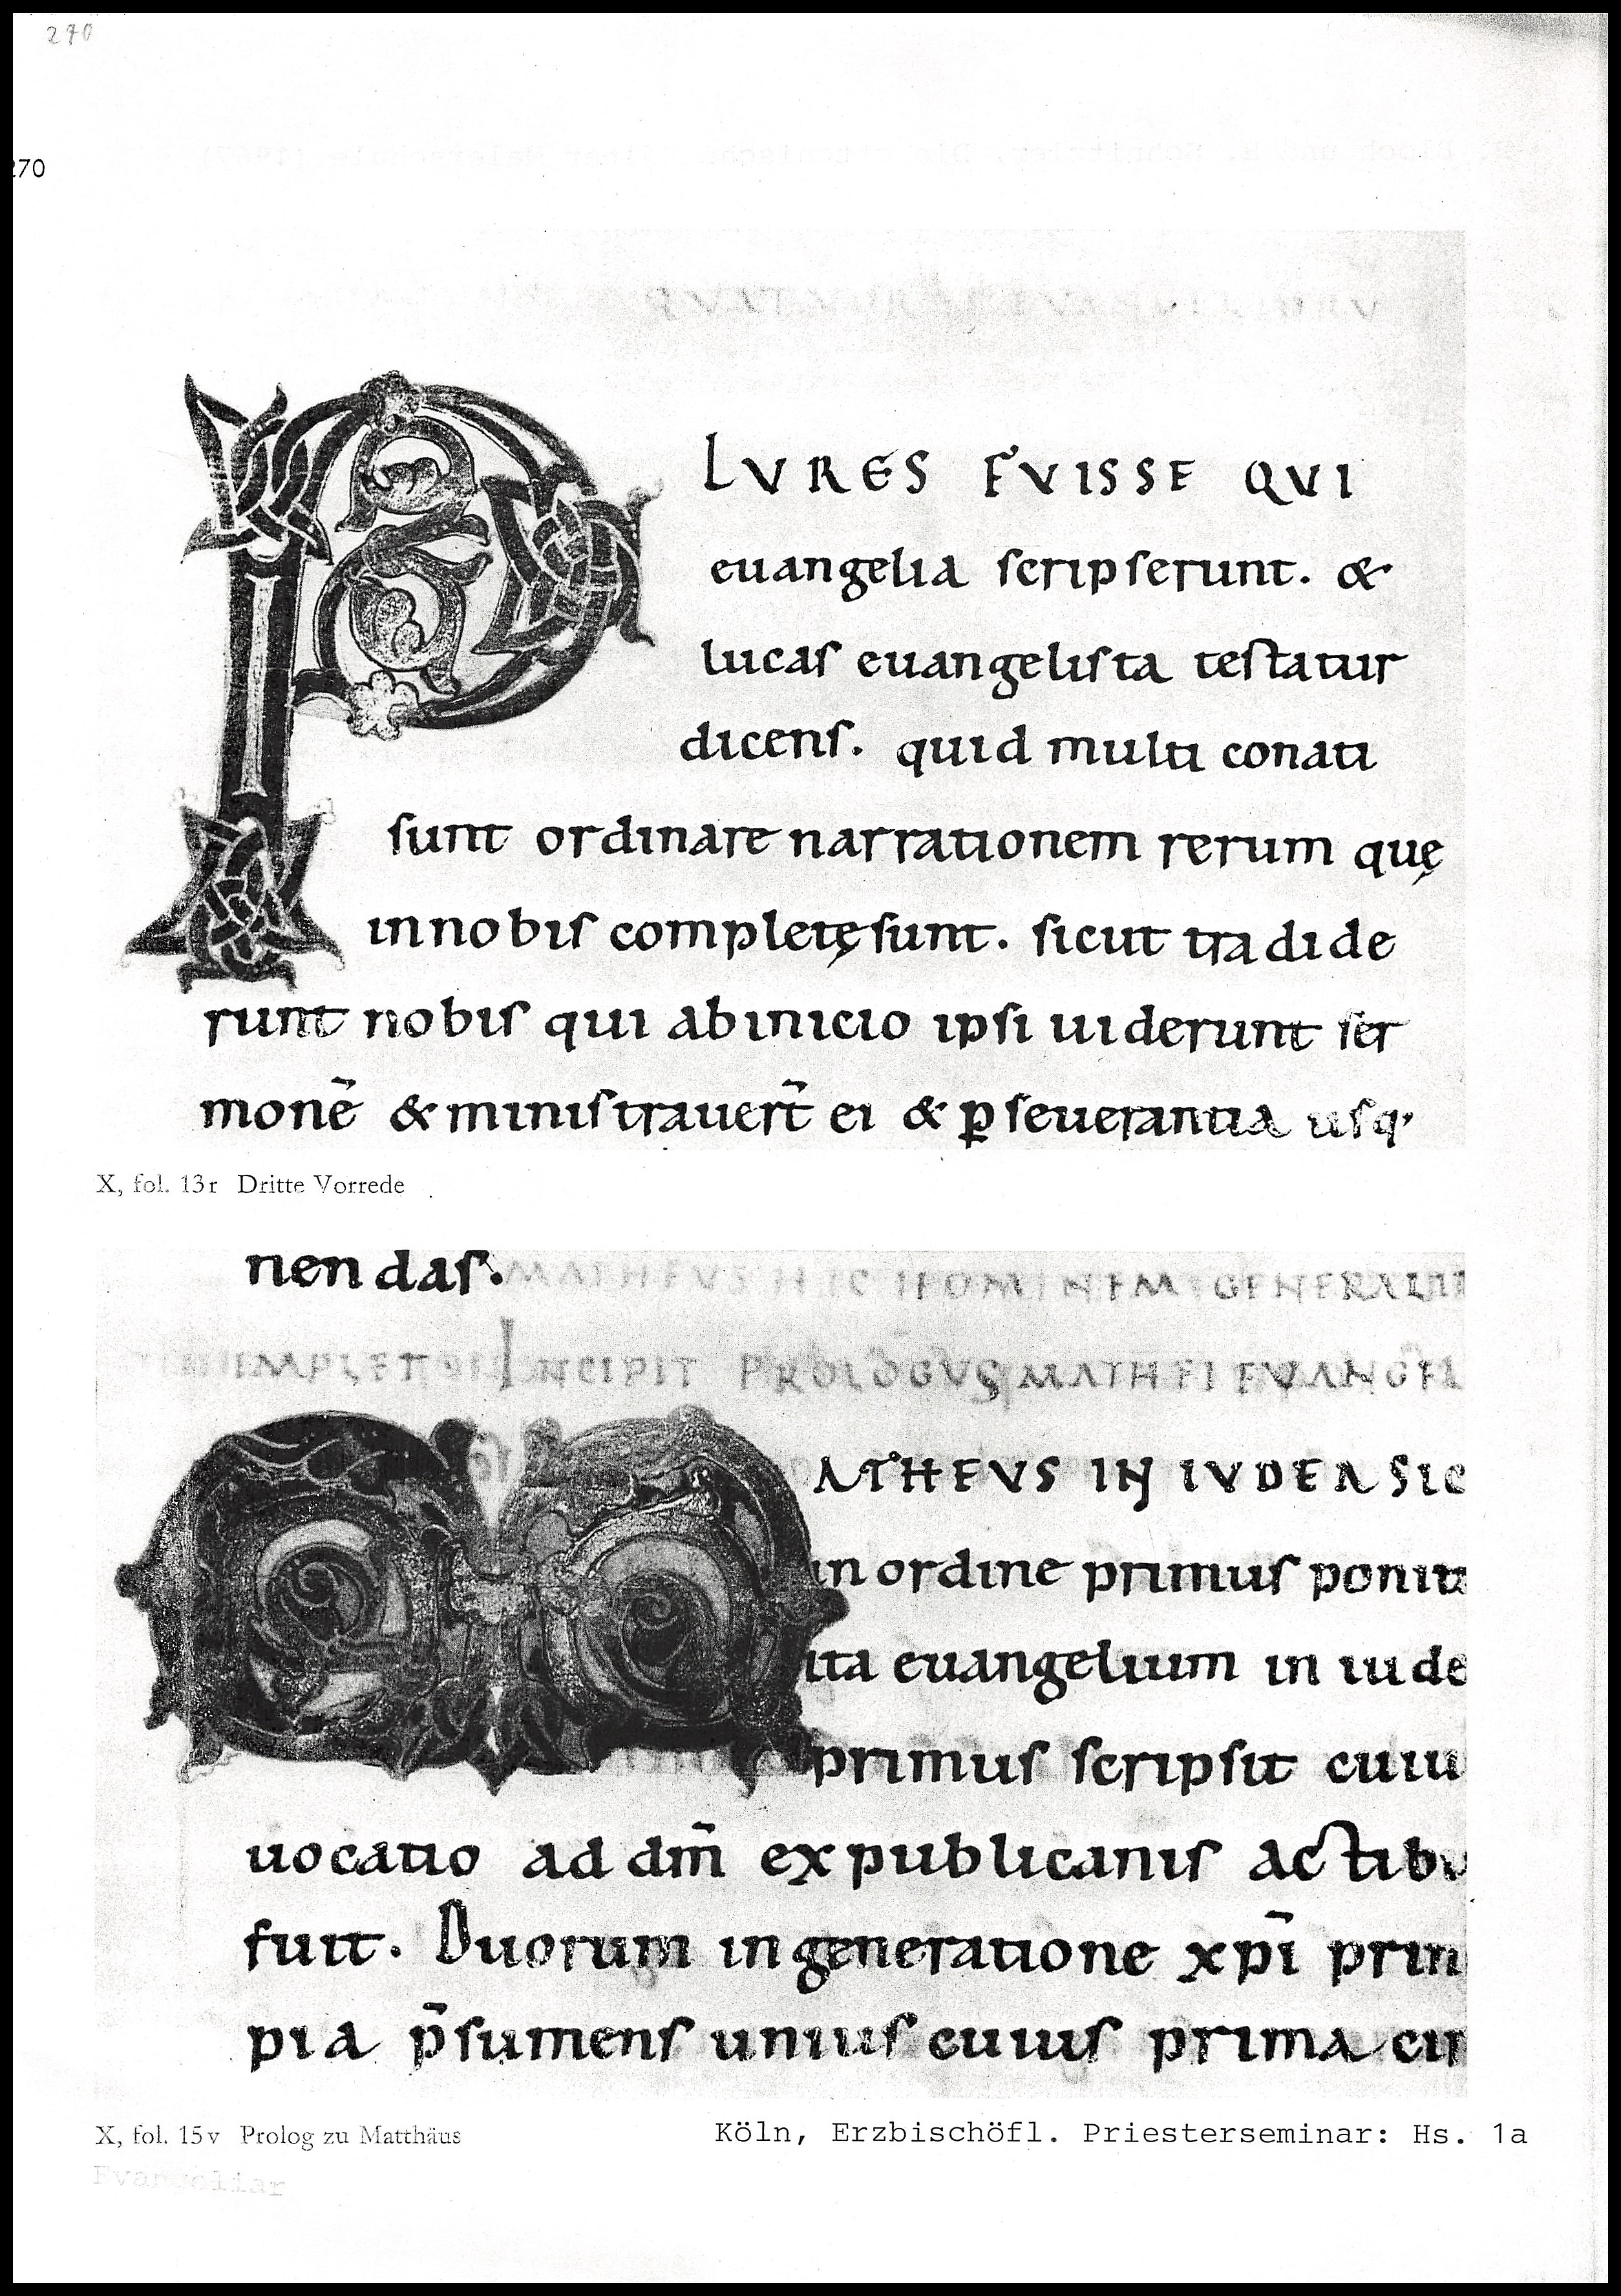 270
270
PLVRES FVISSE QUI
euangelia scripserunt. &
lucas euangelista testatur
dicens. quid multi conati
sunt ordinare narrationem rerum quę
innobis completę sunt. sicut tradide
runt nobis qui abinicio ipsi uiderunt ser
monē & ministrauert̄ ei & ꝑseuerantia usq'
X, fol. 13r Dritte Vorrede
nendas. MATHEVS HIC HOMINEM GENERALIT
IMPLET INCIPIT PROLOGVS MATHEI EVANGEL
MATHEVS IN IVDEA SIC
in ordine primus ponit
ita euangelium in iude
primus scripsit cuiu
uocatio ad dm̄ expublicanis actibu
fuit. Duorum in generatione xpī prin
pia p̄sumens unius cuius prima cir
X, fol. 15v Prolog zu Matthäus
Köln, Erzbischöfl. Priesterseminar: Hs. 1a
Evangeliar